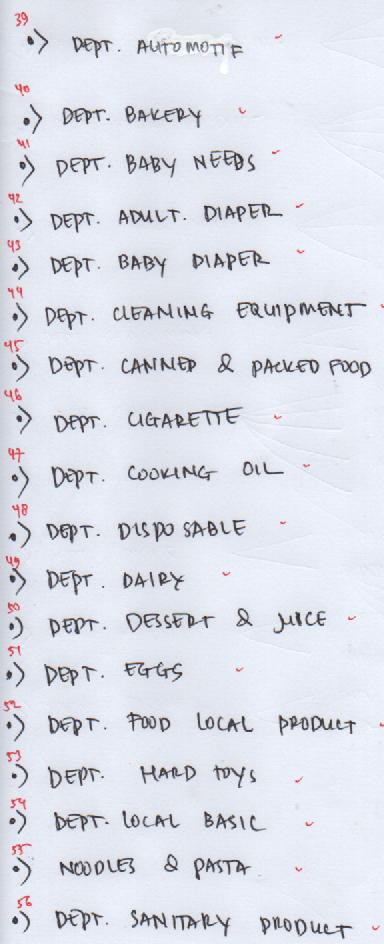 39
•> DEPT. AUTOMOTIF
40
•> DEPT. BAKERY
41
•> DEPT. BABY NEEDS
42
•> DEPT. ADULT. DIAPER
43
•> DEPT. BABY DIAPER
44
•> DEPT. CLEANING EQUIPMENT
45
•> DEPT. CANNED & PACKED FOOD
46
•> DEPT. CIGARETTE
47
•> DEPT. COOKING OIL
48
•> DEPT. DISPOSABLE
49
•> DEPT. DAIRY
50
•) DEPT. DESSERT & JUICE
51
•) DEPT. EGGS
52
•) DEPT. FOOD LOCAL PRODUCT
53
•) DEPT. HARD TOYS
54
•) DEPT. LOCAL BASIC
55
•) NOODLES & PASTA
56
•) DEPT. SANITARY PRODUCT